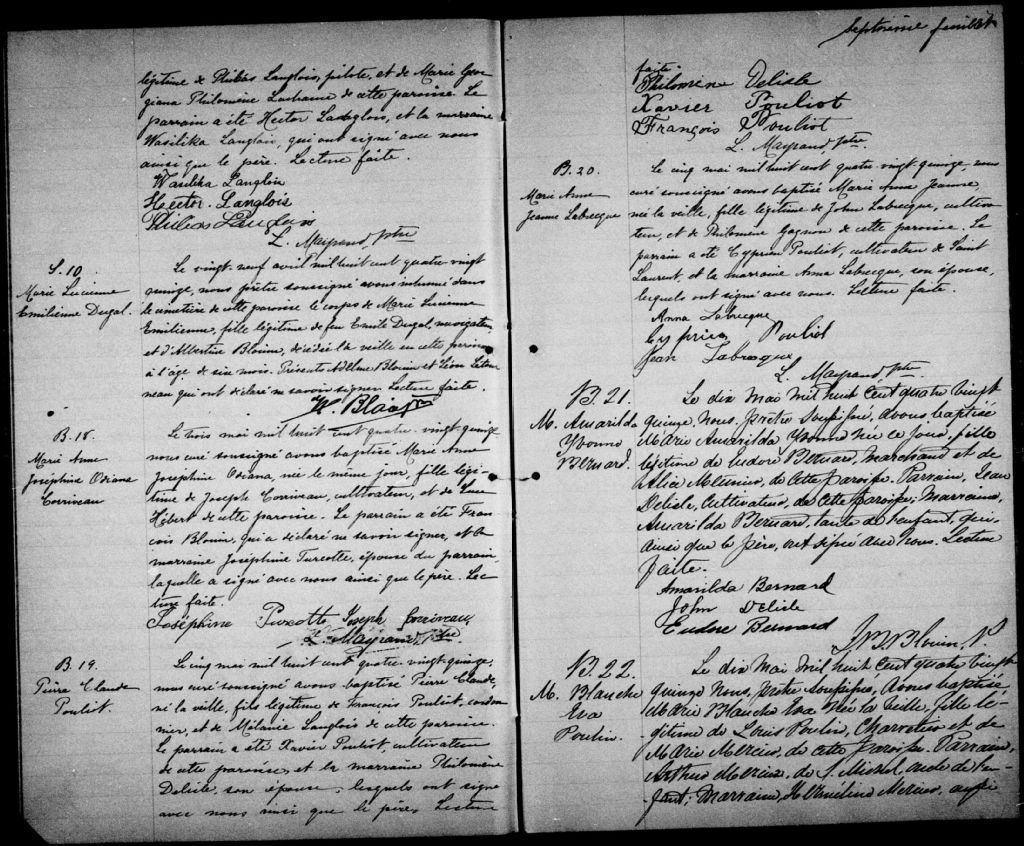 légitime de Philéas Langlois, pilote, et de Marie Geor
giana Philomène Lachance de cette paroisse. Le
parrain a été Hector Langlois, et la marraine
Wasilika Langlois, qui ont signé avec nous
ainsi que le père. Lecture faite.
Wasilika Langlois
Hector Langlois
Philéas Langlois
L. Mayrand ptre
S. 10
Marie Lucienne
Emilienne Dugal.
Le vingt-neuf avril mil huit cent quatre vingt
quinze, nous prêtre soussigné avons inhumé dans
le cimetière de cette paroisse le corps de Marie Lucienne
Emilienne, fille légitime de feu Emile Dugal, navigateur
et d'Albertine Blouin, décédée la veille en cette paroisse
à l'âge de six mois. Présents Adelme Blouin et Léon Létour
neau qui ont déclaré ne savoir signer. Lecture faite.
B. 18.
Marie Anne
Josephine Odiana
Corriveau
Le trois mai mil huit cent quatre-vingt-quinze
nous curé soussigné avons baptisé Marie Anne
Josephine Odiana, née le même jour, fille légi
time de Joseph Corriveau, cultivateur, et de Luce
Hébert de cette paroisse. Le parrain a été Fran
çois Blouin, qui a déclaré ne savoir signer, et la
marraine Joséphine Turcotte, épouse du parrain
laquelle a signé avec nous ainsi que le père. Lec
ture faite.
Joséphine Turcotte Joseph Corriveau
L. Mayrand, Ptre
B. 19.
Pierre Claude
Pouliot.
Le cinq mai mil huit cent quatre-vingt-quinze,
nous curé soussigné avons baptisé Pierre Claude
né la veille, fils légitime de François Pouliot, cordon
nier, et de Mélanie Langlois de cette paroisse.
Le parrain a été Xavier Pouliot, cultivateur
de cette paroisse, et la marraine Philomène
Delisle, son épouse, lesquels ont signé
avec nous ainsi que le père. Lecture
Septième feuillet
faite
Philomène Delisle
Xavier Pouliot
François Pouliot
L. Mayrand ptre
B. 20.
Marie Anne
Jeanne Labrecque
Le cinq mai mil huit cent quatre-vingt-quinze, nous
curé soussigné avons baptisé Marie Anna Jeanne,
née la veille, fille légitime de John Labrecque, cultiva
teur, et de Philomène Gagnon de cette paroisse. Le
parrain a été Cyprien Pouliot, cultivateur de Saint
Laurent, et la marraine Anna Labrecque, son épouse,
lesquels ont signé avec nous. Lecture faite.
Anna Labrecque
Cyprien Pouliot
Jean Labrecque
L. Mayrand ptre
B. 21.
M. Amarilda
Yvonne
Bernard.
Le dix Mai Mil huit Cent quatre vingt
quinze, Nous, Prêtre Soussigné, Avons baptisé
Marie Amarilda Yvonne Née ce jour, fille
légitime de Eudore Bernard, Marchand et de
Mercier, de Cette Paroisse. Parrain, Jean
Delisle, Cultivateur, de Cette paroisse; Marraine,
Amarilda Bernard, tante de l'enfant, qui,
Ainsi que le père, ont signé avec Nous. Lecture
faite.
Amarilda Bernard
John Delisle
Eudore Bernard
Blouin, P.
B. 22.
M. Blanche
Eva
Poulin.
Le dix Mai Mil huit Cent quatre vingt
quinze Nous, Prêtre Soussigné, Avons baptisé
Marie Blanche Eva Née la veille, fille lé-
gitime de Louis Poulin, Charretier et de
Marie Mercier, de Cette Paroisse. Parrain,
Arthur Mercier, de S. Michel, oncle de l'en-
fant; Marraine, Herméline Mercier, aussi